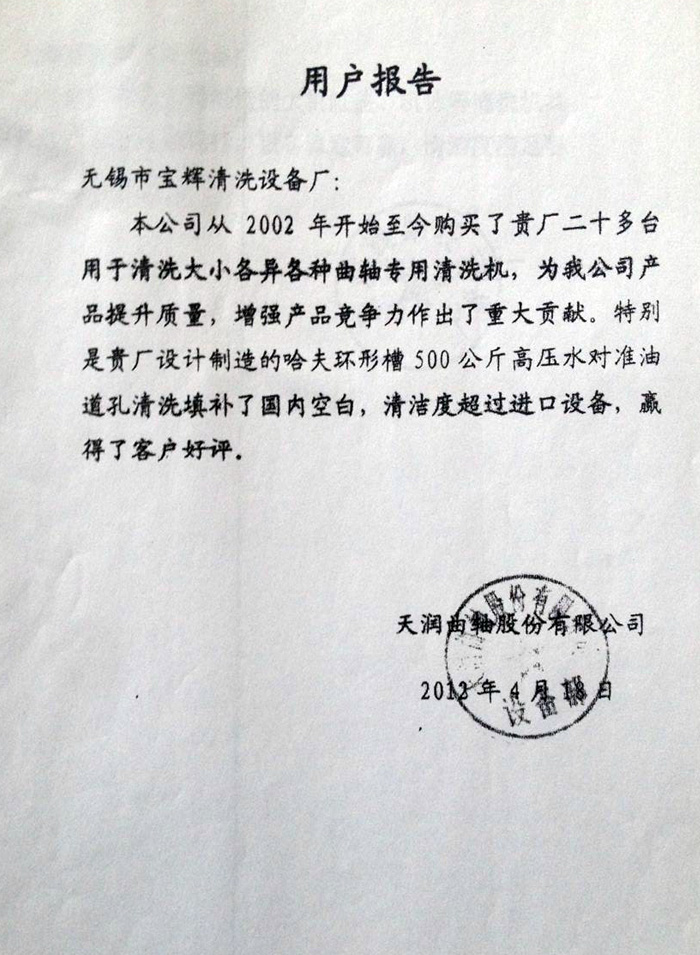 用户报告
无锡市宝辉清洗设备厂：
本公司从 2002 年开始至今购买了贵厂二十多台
用于清洗大小各异各种曲轴专用清洗机，为我公司产
品提升质量，增强产品竞争力作出了重大贡献。特别
是贵厂设计制造的哈夫环形槽 500 公斤高压水对准油
道孔清洗填补了国内空白，清洁度超过进口设备，赢
得了客户好评。
天润曲轴股份有限公司
2012 年 4 月 18 日
股份有限
设备部